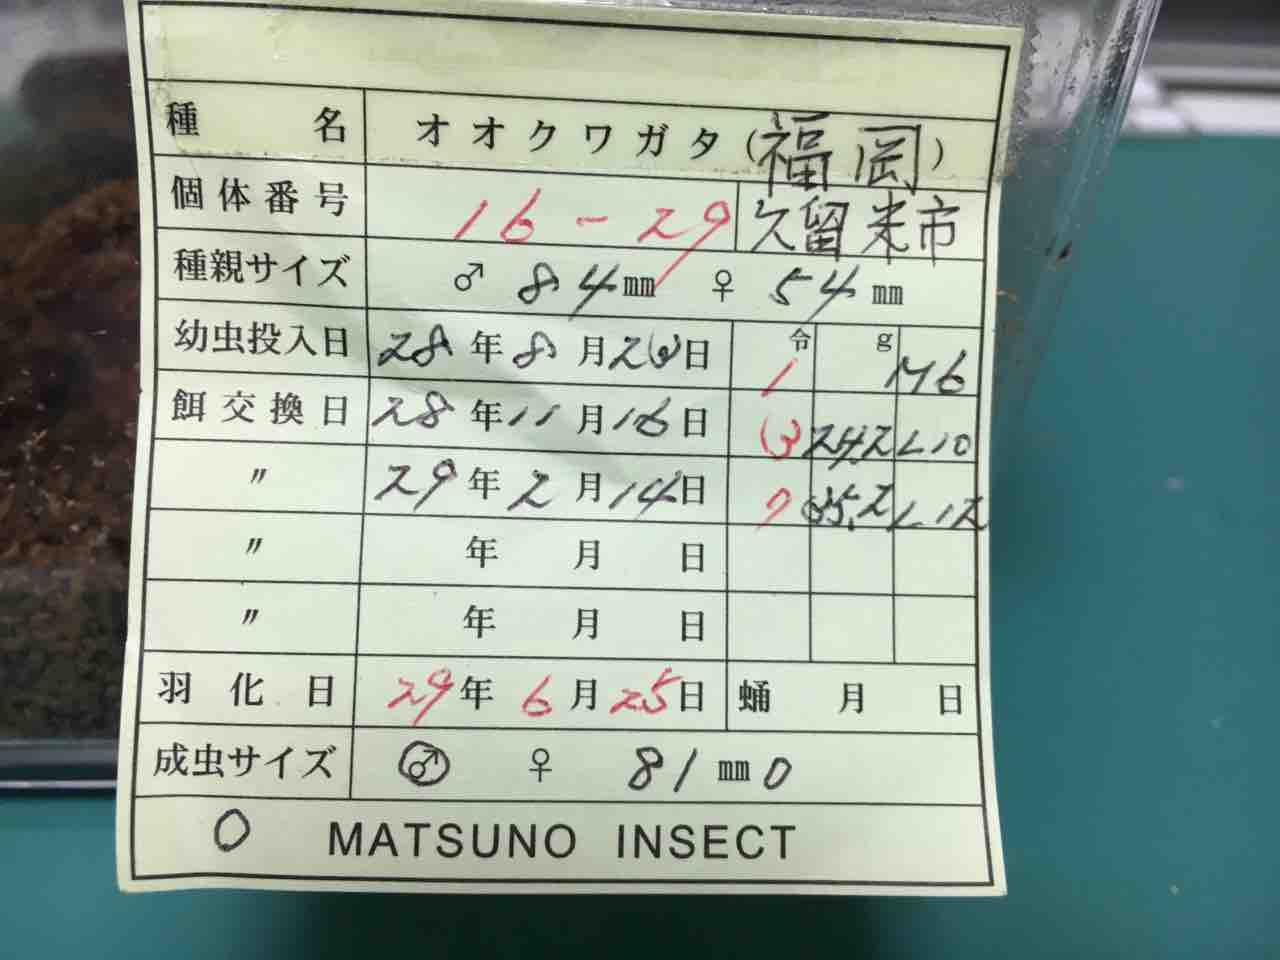 種名 オオクワガタ(福岡)
個体番号 16-29 久留米市
種親サイズ ♂ 84mm ♀ 54mm
幼虫投入日 28年8月20日 令 1 g M6
餌交換日 28年11月16日 3 24.2 L10
〃 29年2月14日 35.2 L12
〃 年 月 日
〃 年 月 日
羽化日 29年6月25日 蛹 月 日
成虫サイズ ♂ ♀ 81mm0
0 MATSUNO INSECT